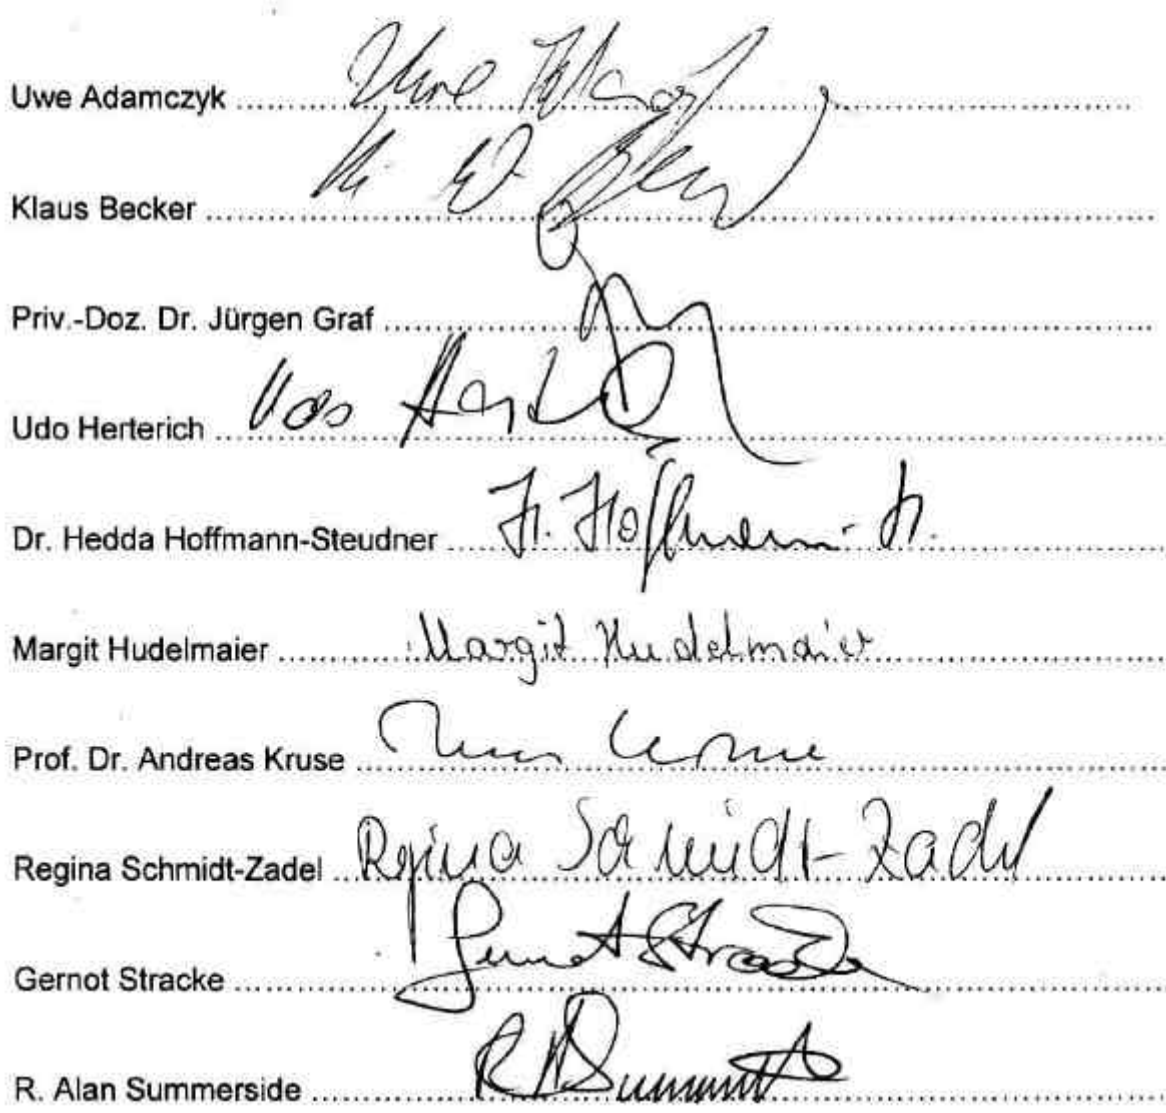 Uwe Adamczyk ........ Uwe
Klaus Becker ........
Priv.-Doz. Dr. Jürgen Graf ........
Udo Herterich ........ Udo
Dr. Hedda Hoffmann-Steudner ........ H. Hoffmann-St.
Margit Hudelmaier ........ Margit Hudelmaier
Prof. Dr. Andreas Kruse ........ Kruse
Regina Schmidt-Zadel ........ Regina Schmidt-Zadel
Gernot Stracke ........ Gernot Stracke
R. Alan Summerside ........